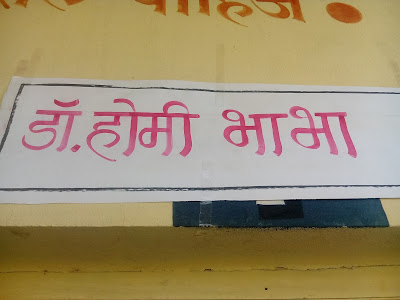 डॉ. होमी भाभा